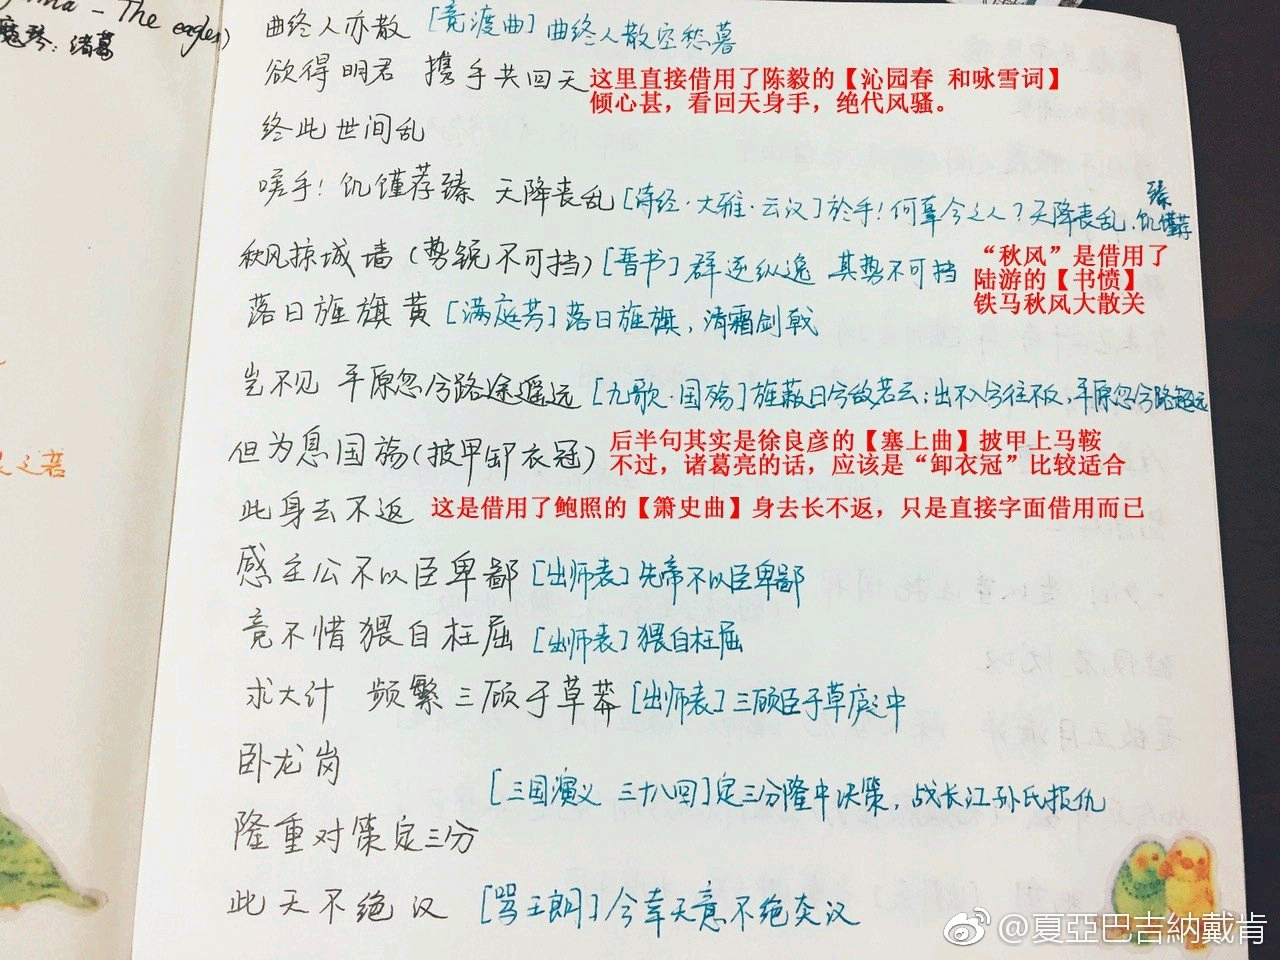 The eagles)
曲终人亦散 [竞渡曲] 曲终人散空愁暮
欲得明君 携手共回天 这里直接借用了陈毅的【沁园春 和咏雪词】
倾心甚，看回天身手，绝代风骚。
终此世间乱
嗟乎！饥馑荐臻 天降丧乱 [诗经·大雅·云汉] 於乎！何辜今之人？天降丧乱，饥馑荐臻
秋风掠城墙 (势锐不可挡) [晋书] 群逆纵逸 其势不可挡
“秋风”是借用了
陆游的【书愤】
铁马秋风大散关
落日旌旗黄 [满庭芳] 落日旌旗，清霜剑戟
岂不见 平原忽兮路途遥远 [九歌·国殇] 旌蔽日兮敌若云；出不入兮往不反，平原忽兮路超远
但为息国殇 (披甲卸衣冠) 后半句其实是徐良彦的【塞上曲】披甲上马鞍
不过，诸葛亮的话，应该是“卸衣冠”比较适合
此身去不返 这是借用了鲍照的【箫史曲】身去长不返，只是直接字面借用而已
感主公不以臣卑鄙 [出师表] 先帝不以臣卑鄙
竟不惜猥自枉屈 [出师表] 猥自枉屈
求大计 频繁三顾于草莽 [出师表] 三顾臣于草庐之中
卧龙岗
[三国演义 三十八回] 定三分隆中决策，战长江孙氏报仇
隆重对策定三分
此天不绝汉 [骂王朗] 今幸天意不绝炎汉
@夏亞巴吉納戴肯